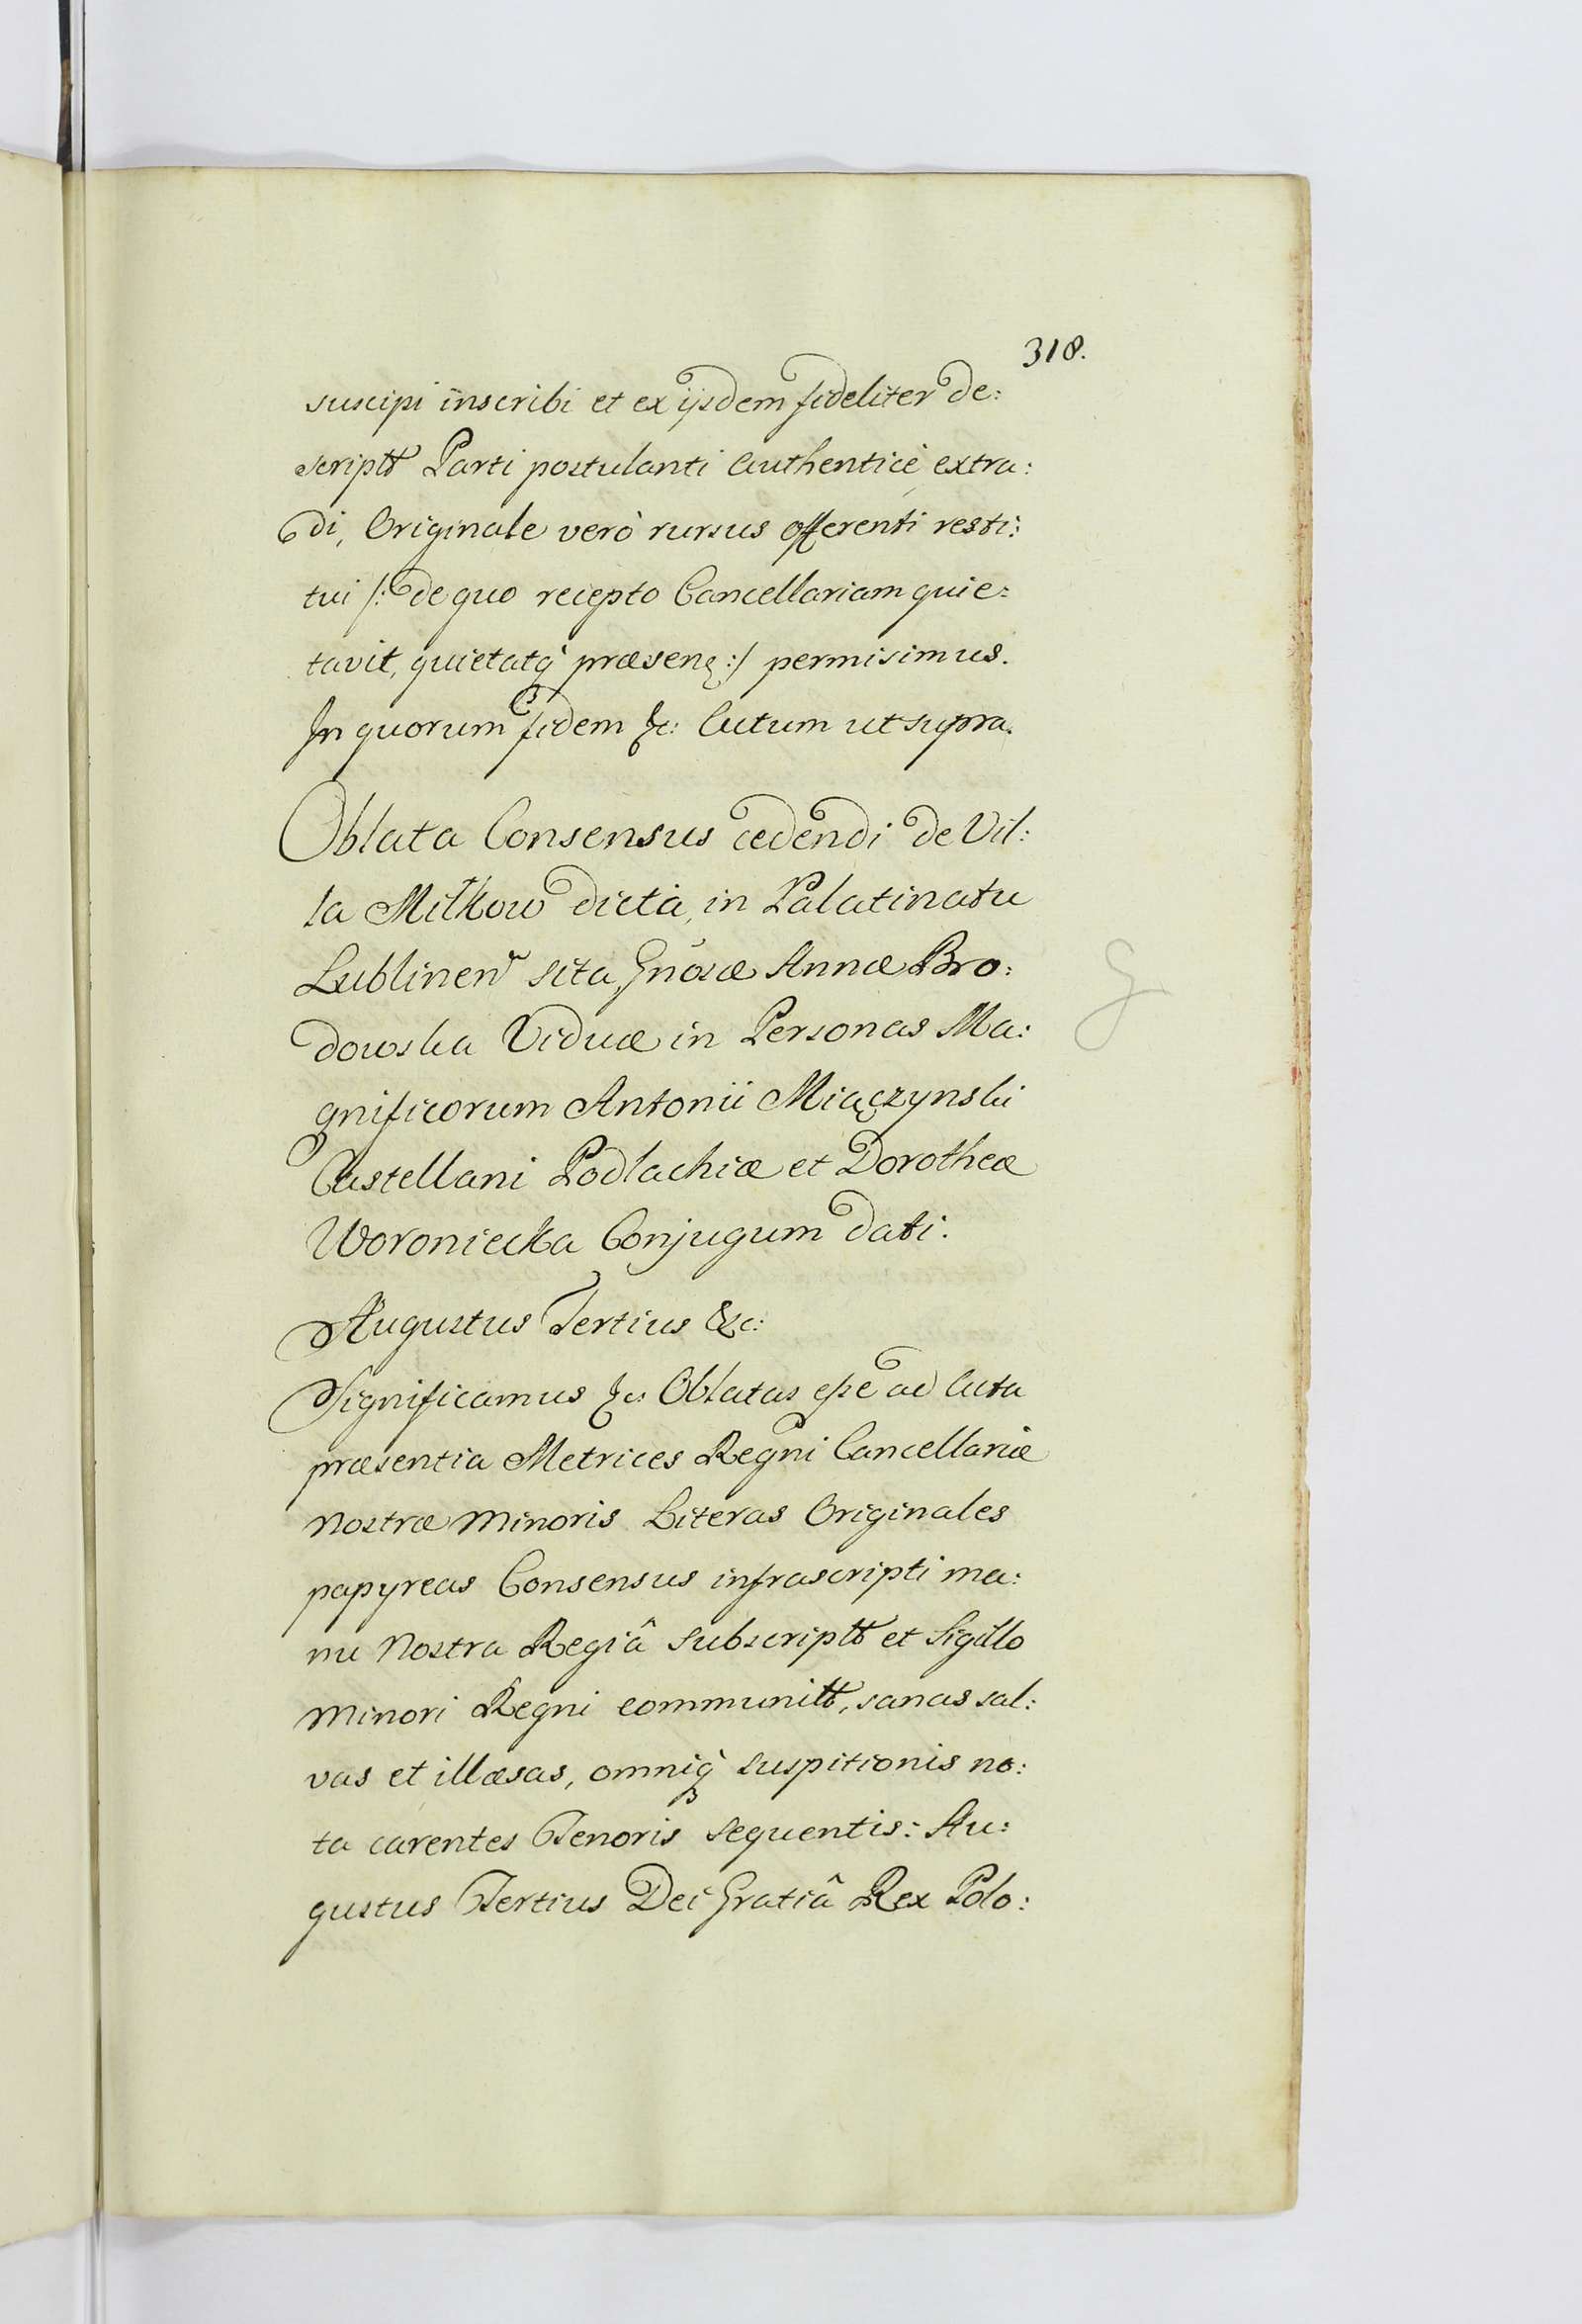 318.
suscipi inscribi et ex ijsdem fideliter de:
scriptt Parti postulanti Authenticè extra:
di, Originale verò rursus offerenti resti:
tui /: de quo recepto Cancellariam quie:
tavit, quietatq́ præsenɐ :/ permisimus.
In quorum fidem &c: Actum ut supra.
Oblata Consensus cedendi de Vil:
la Miłkow dicta, in Palatinatu
Lublinen̄ sita, Gnōsæ Annæ Bro:
dowska Viduæ in Personas Ma:
gnificorum Antonii Miączynski
Castellani Podlachiæ et Dorotheæ
Woroniecka Conjugum dati.
Augustus Tertius &c:
Significamus &c: Oblatas esse ad Acta
præsentia Metrices Regni Cancellariæ
Nostræ Minoris Literas Originales
papyreas Consensus infrascripti ma:
nu Nostra Regiâ subscriptt et Sigillo
Minori Regni communitt, sanas sal:
vas et illæsas, omniq́ suspitionis no:
ta carentes Tenoris sequentis: Au:
gustus Tertius Dei Gratiâ Rex Polo: